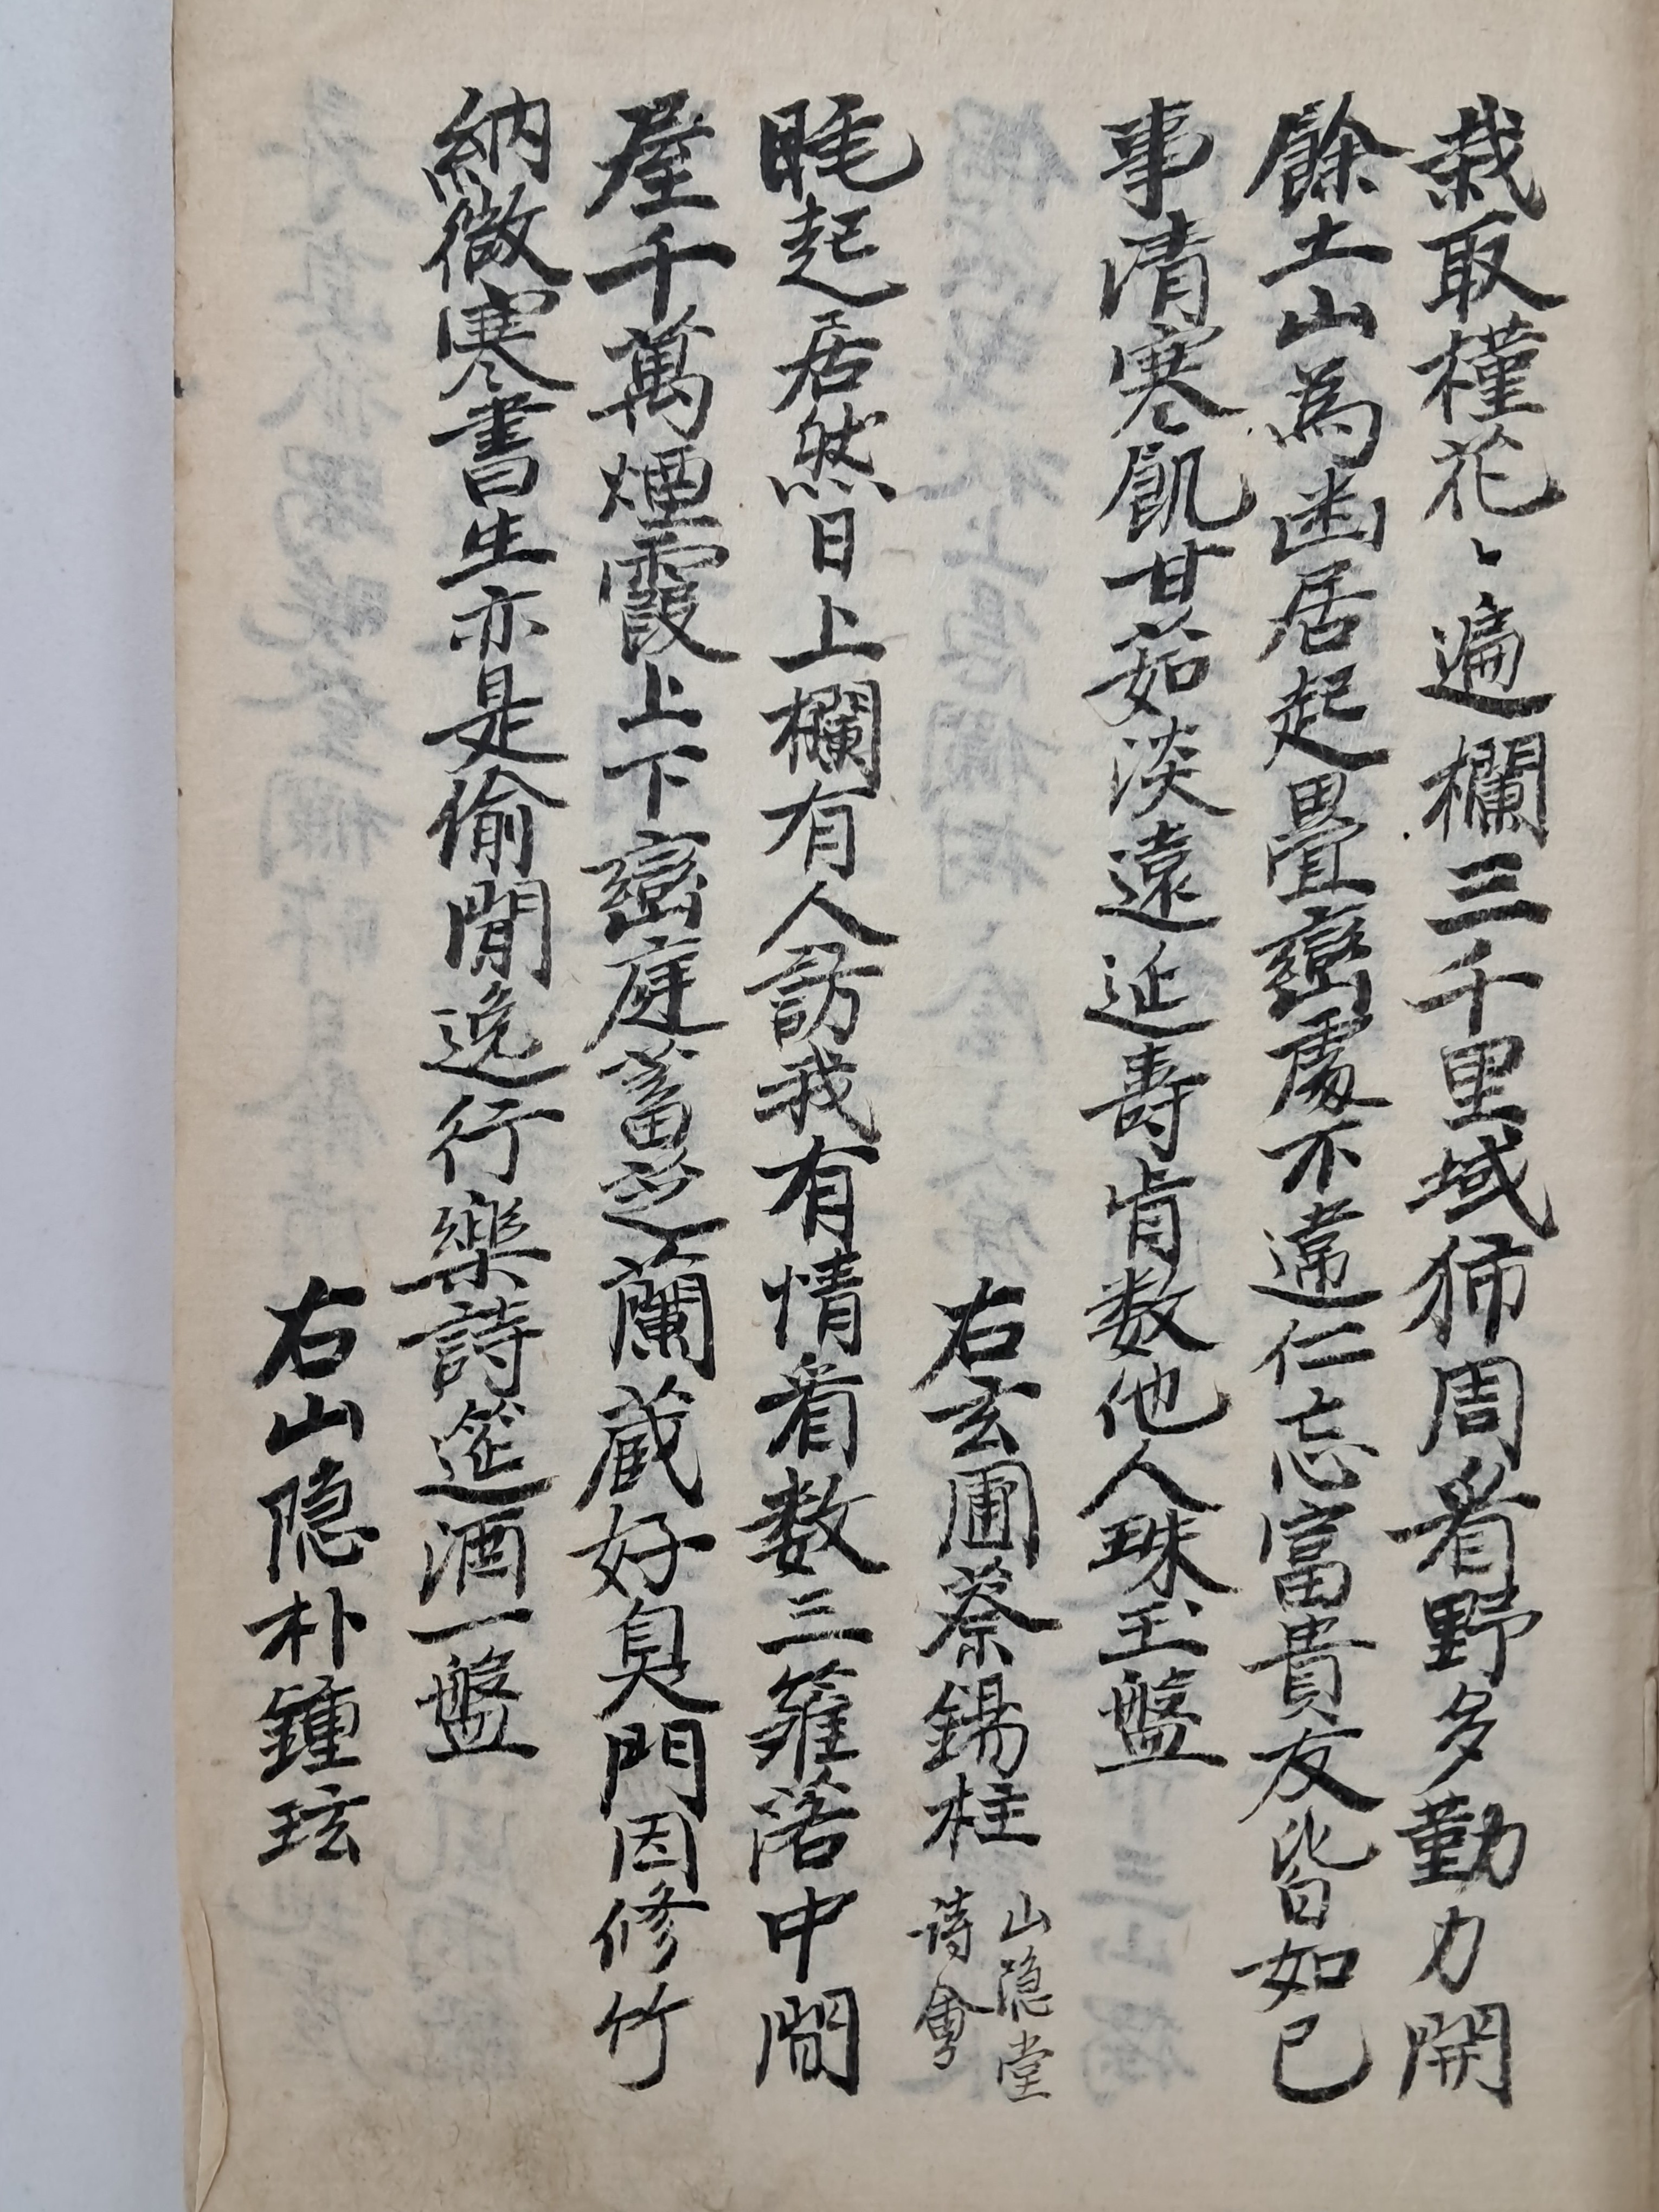 栽取槿花〻遍欄三千里域㹃周看野多勤力開
餘土山爲幽居起畳巒處不違仁忘富貴友皆如己
事清寒飢甘茹淡遠延壽肯数他人珠玉盤
右玄圃蔡錫柱
山隐堂
詩會
睡起居然日上欄有人訪我有情看数三籬落中間
屋千萬煙霞上下巒庭蓄芝蘭蔵好臭門因修竹
納微寒書生亦是偷閒逸行樂詩筵酒一盤
右山隐朴鍾玹